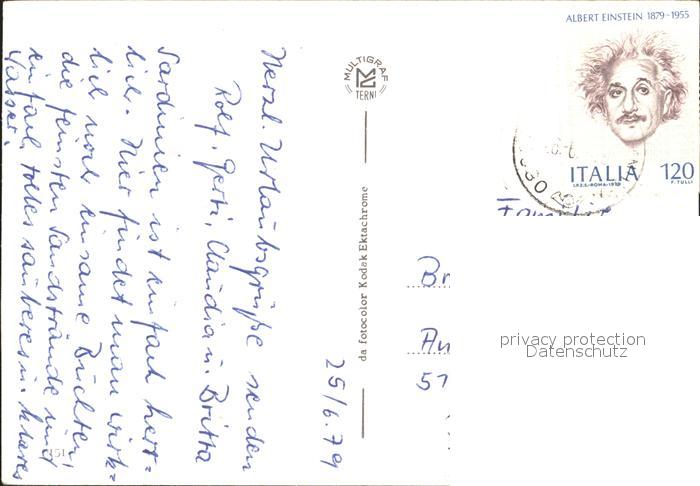 ALBERT EINSTEIN 1879-1955
ITALIA 120
I.P.Z.S.-ROMA-1979
F. TULLI
MULTIGRAF
TERNI
da fotocolor Kodak Ektachrome
25/6.79
Herzl. Urlaubsgrüße senden
Rolf, Gerti, Claudia u. Britta
Sardinien ist einfach herr=
lich. Hier findet man wirk=
lich noch einsame Buchten,
die feinsten Sandstrände und
einfach tolles sauberes u. klares
Wasser.
Familie
Br
An
51
privacy protection
Datenschutz
151